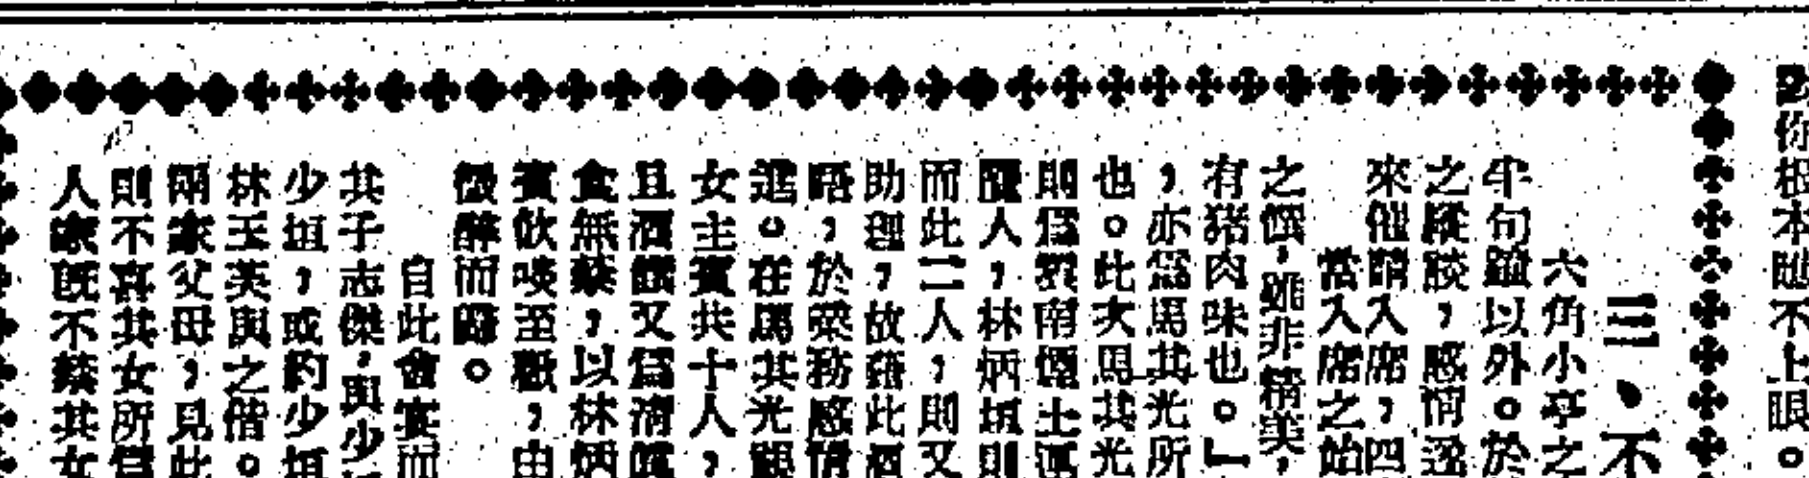 你根本瞧不上眼。
三、不
六角小亭之
牛句鐘以外。於
之蹤談，感情遂
來催請入席，四
當入席之始
之饌，雖非精美，
有猪肉味也。」
，亦為馬其光所
也。此次馬其光
則為雲南煙土運
人，林炳垣則
而此二人，則又
助理，故藉此酒
晤，於業務感情
進。在馬其光觀
女主賓共十人，
且酒饌又為清真
食無禁，以林炳
賓飲啖至歡，由
微醉而歸。
自此會宴而
其子志傑，與少
少垣，或約少垣
林玉英與之偕。
兩家父母，見此
則不喜其女所為
人家既不禁其女